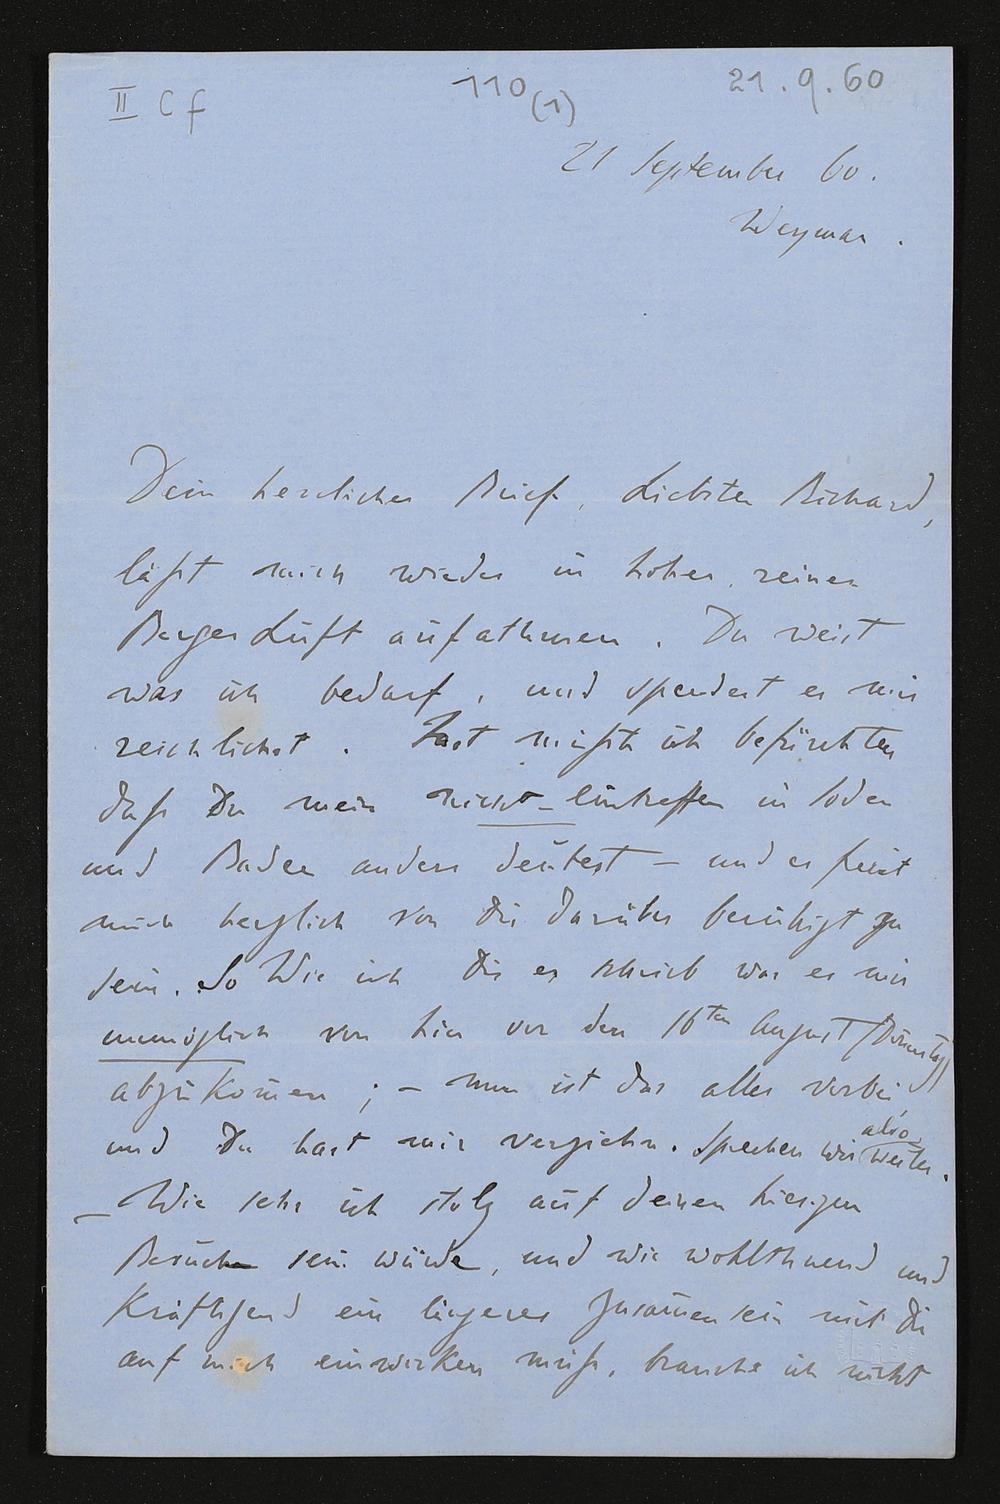 II C f 110(1) 21.9.60
21 September 60.
Weymar.
Dein herrlicher Brief, Liebster Richard,
läßt mich wieder in hoher, reiner
Berges Luft aufathmen. Du weist
was ich bedarf, und spendest es mir
reichlichst. Fast müßte ich befürchten
daß Du mein nicht-Eintreffen in Soden
und Baden anders deutest – und es freut
mich herzlich von Dir darüber beruhigt zu
sein. So Wie ich Dir es schrieb war es mir
unmöglich von hier vor den 16ten August (Donnerstag)
abzukom̄en; – nun ist das alles vorbei
und Du hast mir verziehn. Sprechen wir also weiter.
– Wie sehr ich stolz auf deinen hiesigen
Besuch sein würde, und wie wohlthuend und
Kräftigend ein längeres Zusam̄ensein mit Dir
auf mich einwirken muß, brauche ich nicht